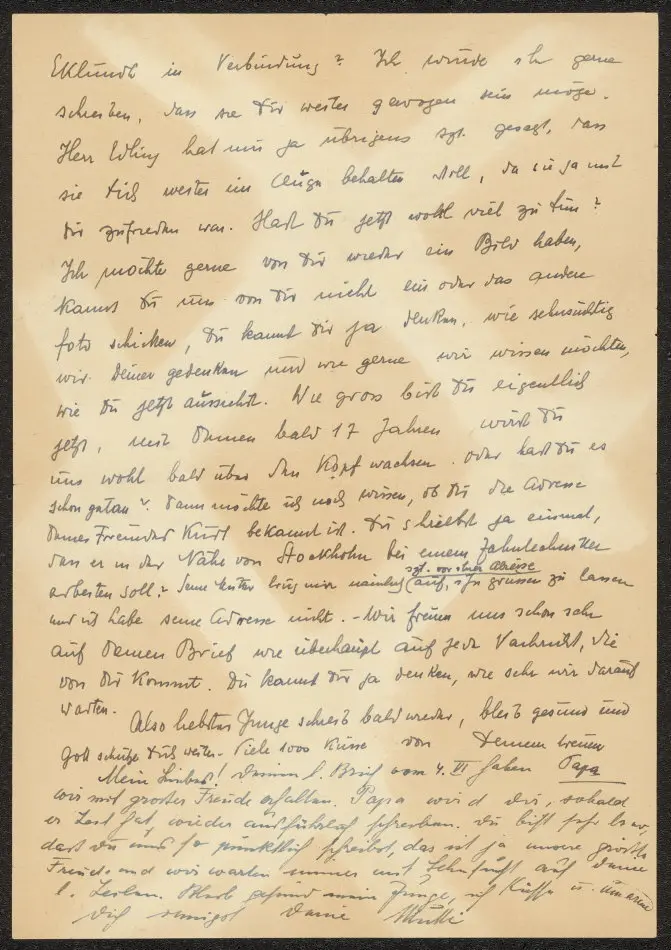 Eklundt in Verbindung? Ich würde ihr gerne
schreiben, dass sie Dir weiter gewogen sein möge.
Herr Edling hat uns ja übrigens szt. gesagt, dass
sie Dich weiter im Auge behalten soll, da sie ja mit
Dir zufrieden war. Hast Du jetzt wohl viel zu tun?
Ich möchte gerne von Dir wieder ein Bild haben,
kannst Du uns von Dir nicht ein oder das andere
foto schicken, Du kannst Dir ja denken, wie sehnsüchtig
wir Deiner gedenken und wie gerne wir wissen möchten,
wie Du jetzt aussiehst. Wie gross bist Du eigentlich
jetzt, mit Deinen bald 17 Jahren wirst Du
uns wohl bald über den Kopf wachsen. oder hast Du es
schon getan? Dann möchte ich noch wissen, ob Dir die Adresse
Deines Freundes Kurt bekannt ist. Du schriebst ja einmal,
dass er in der Nähe von Stockholm bei einem Zahntechniker
szt. vor ihrer Abreise
arbeiten soll? Seine Mutter trug mir nämlich auf, ihn grüssen zu lassen
und ich habe seine Adresse nicht. - Wir freuen uns schon sehr
auf Deinen Brief wie überhaupt auf jede Nachricht, die
von Dir kommt. Du kannst Dir ja denken, wie sehr wir darauf
warten.
Also liebster Junge schreib bald wieder, bleib gesund und
Gott schütze Dich weiter. Viele 1000 Küsse von Deinem treuen
Papa
Mein Liebes! Deinen l. Brief vom 4. VI haben
wir mit grosser Freude erhalten. Papa wird Dir, sobald
er Zeit hat, wieder ausführlich schreiben. Du bist sehr brav,
dass Du uns so pünktlich schreibst, das ist ja unsere grösste
Freude und wir warten immer mit Sehnsucht auf Deine
l. Zeilen. Bleib gesund mein Junge, ich küsse u. umarme
Dich innigst Deine Mutti